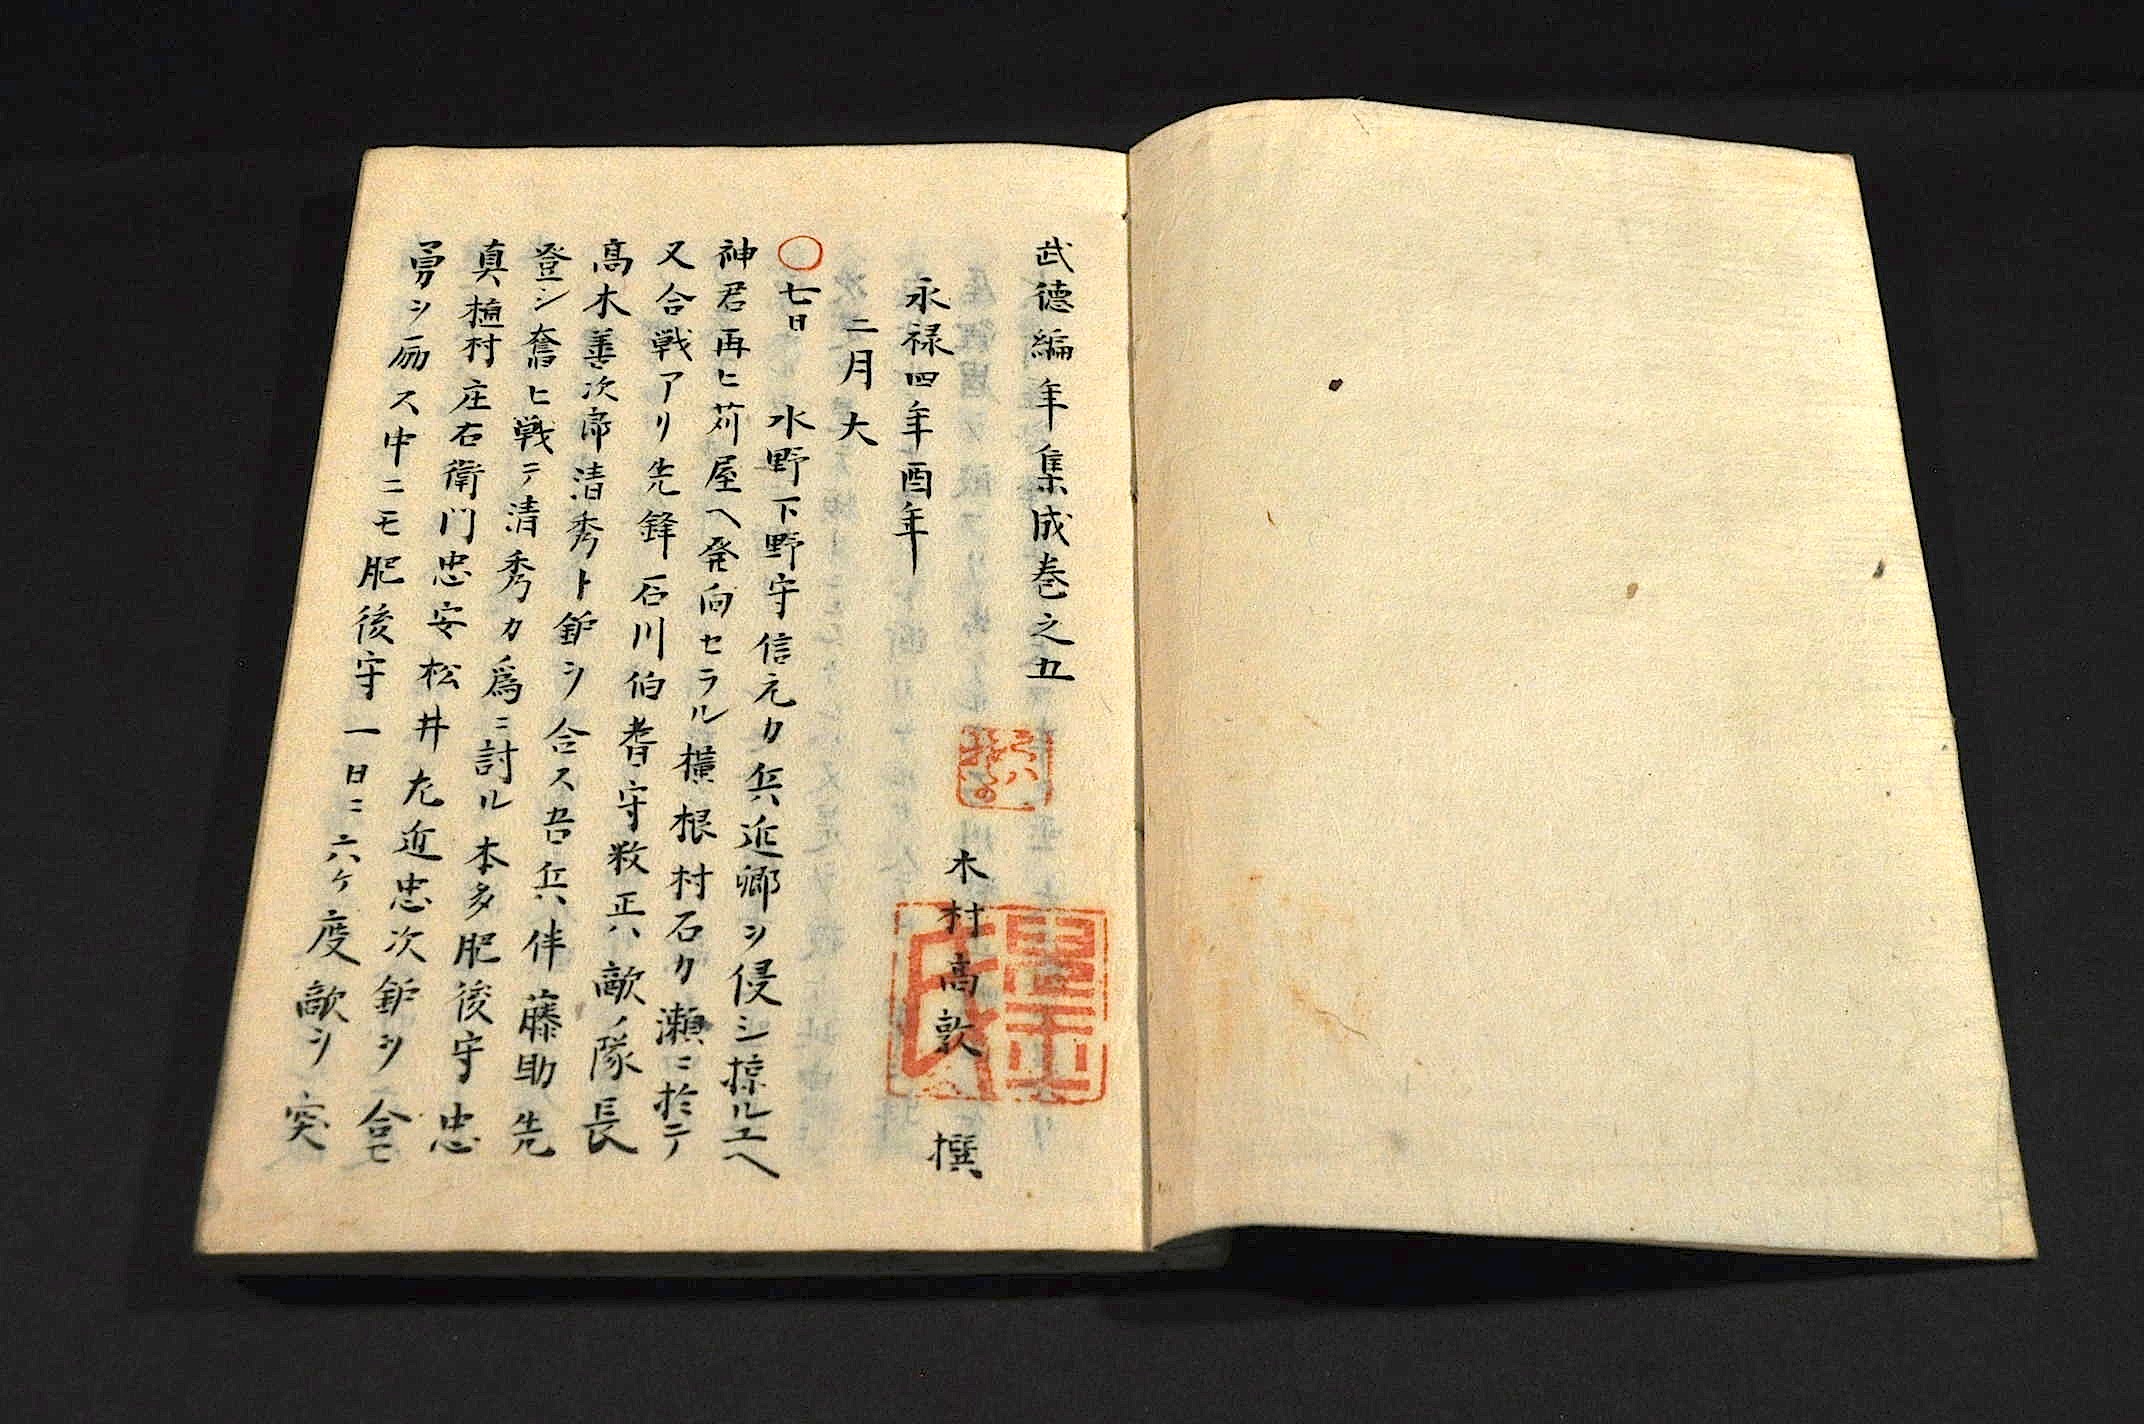 武徳編年集成巻之五
木村高敦 撰
永禄四年酉年
二月大
〇七日 水野下野守信元カ兵近郷ヲ侵シ掠ルユヘ
神君再ヒ苅屋ヘ発向セラル横根村石ク瀬ニ於テ
又合戦アリ先鋒石川伯耆守数正ハ敵ノ隊長
高木善次郎清秀ト鈩ヲ合ス吾兵ハ伴藤助先
登シ奮ヒ戦テ清秀カ為ニ討ル本多肥後守忠
真植村庄右衛門忠安松井左近忠次鈩ヲ合モ
勇ヲ励ス中ニモ肥後守一日ニ六ケ度敵ヲ突